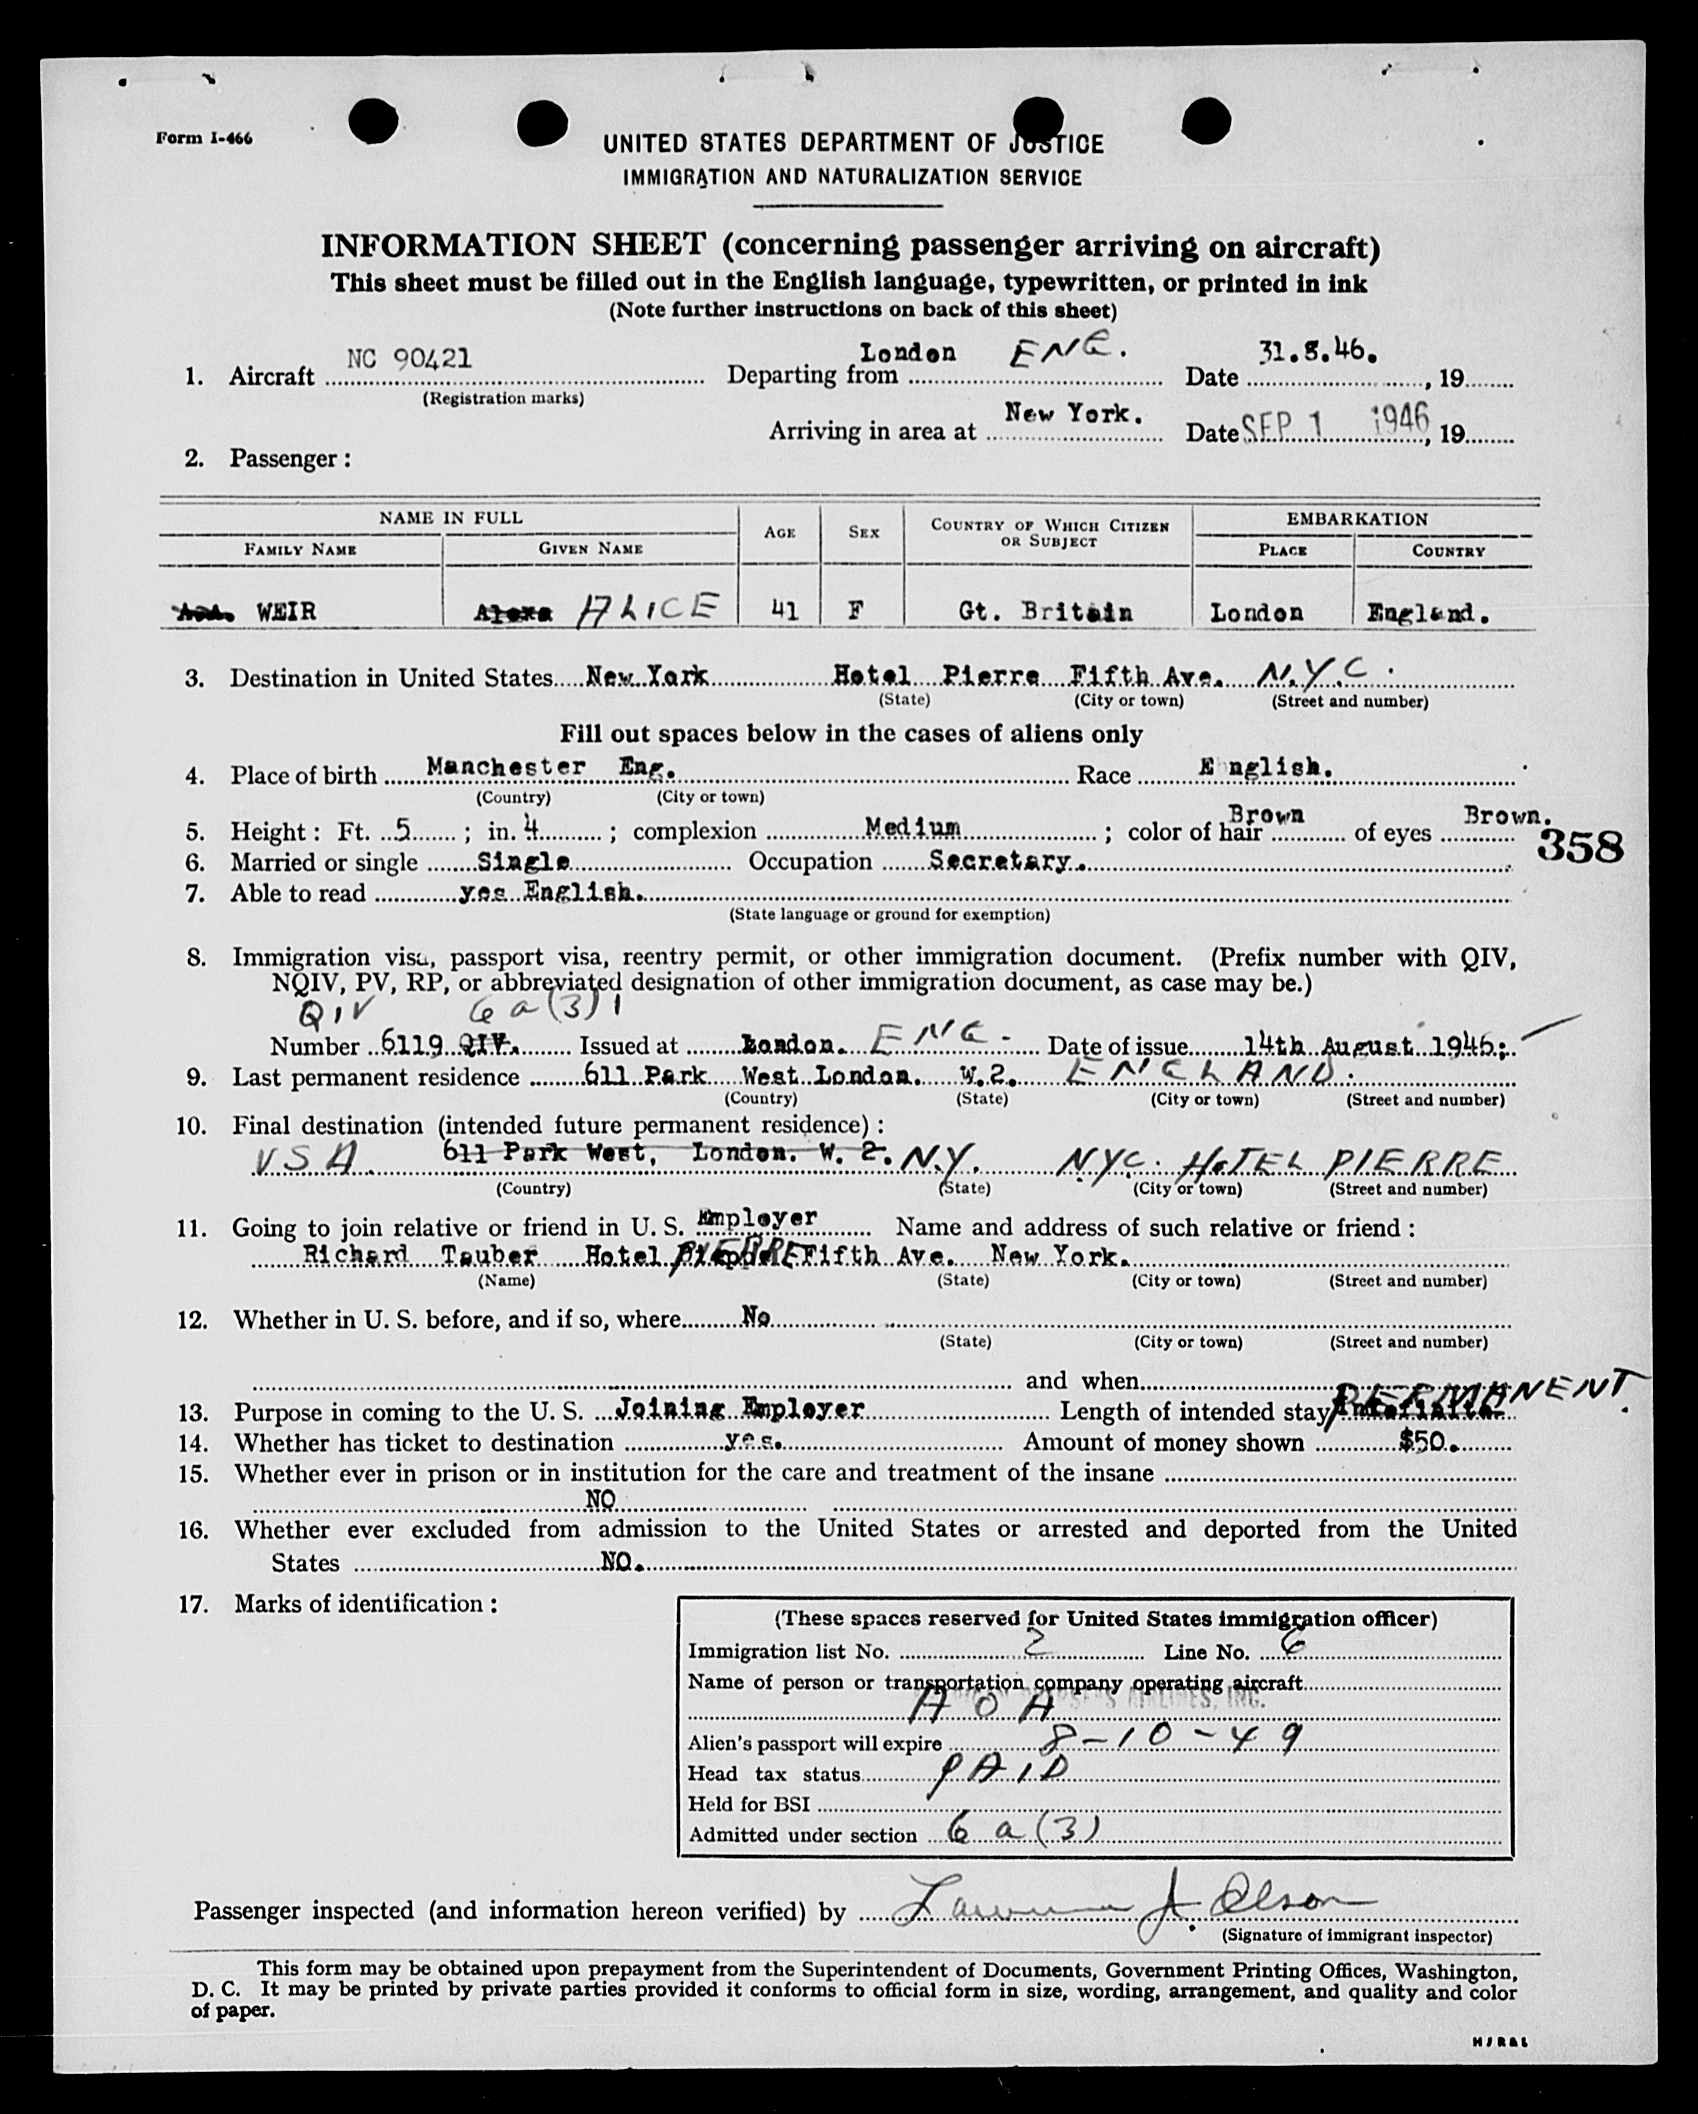 Form I-466
UNITED STATES DEPARTMENT OF JUSTICE
IMMIGRATION AND NATURALIZATION SERVICE
INFORMATION SHEET (concerning passenger arriving on aircraft)
This sheet must be filled out in the English language, typewritten, or printed in ink
(Note further instructions on back of this sheet)
1. Aircraft NC 90421 Departing from London ENG. Date 31.8.46. , 19
(Registration marks)
Arriving in area at New York. Date SEP 1 1946, 19
2. Passenger:
NAME IN FULL AGE SEX COUNTRY OF WHICH CITIZEN OR SUBJECT EMBARKATION
FAMILY NAME GIVEN NAME PLACE COUNTRY
WEIR Alexa ALICE 41 F Gt. Britain London England.
3. Destination in United States New York Hotel Pierre Fifth Ave. N.Y.C.
(State) (City or town) (Street and number)
Fill out spaces below in the cases of aliens only
4. Place of birth Manchester Eng. Race E nglish.
(Country) (City or town)
5. Height: Ft. 5 ; in. 4 ; complexion Medium ; color of hair Brown of eyes Brown.
358
6. Married or single Single Occupation Secretary.
7. Able to read yes English.
(State language or ground for exemption)
8. Immigration visa, passport visa, reentry permit, or other immigration document. (Prefix number with QIV,
NQIV, PV, RP, or abbreviated designation of other immigration document, as case may be.)
QIV 6a(3)
Number 6119 QIV. Issued at London. ENG. Date of issue 14th August 1946.
9. Last permanent residence 611 Park West London. W.2. ENGLAND.
(Country) (State) (City or town) (Street and number)
10. Final destination (intended future permanent residence):
USA 611 Park West, London. W. 2. N.Y. NYC. HOTEL PIERRE
(Country) (State) (City or town) (Street and number)
11. Going to join relative or friend in U. S. Employer Name and address of such relative or friend:
Richard Tauber Hotel PIERRE Fifth Ave. New York.
(Name) (State) (City or town) (Street and number)
12. Whether in U. S. before, and if so, where No
(State) (City or town) (Street and number)
and when
13. Purpose in coming to the U. S. Joining Employer Length of intended stay PERMANENT.
14. Whether has ticket to destination yes. Amount of money shown $50.
15. Whether ever in prison or in institution for the care and treatment of the insane
NO
16. Whether ever excluded from admission to the United States or arrested and deported from the United
States NO.
17. Marks of identification:
(These spaces reserved for United States immigration officer)
Immigration list No. 2 Line No. 6
Name of person or transportation company operating aircraft
AOA OVERSEAS AIRLINES, INC.
Alien's passport will expire 8-10-49
Head tax status PAID
Held for BSI
Admitted under section 6a(3)
Passenger inspected (and information hereon verified) by Lawrence J. Olson
(Signature of immigrant inspector)
This form may be obtained upon prepayment from the Superintendent of Documents, Government Printing Offices, Washington,
D. C. It may be printed by private parties provided it conforms to official form in size, wording, arrangement, and quality and color
of paper.